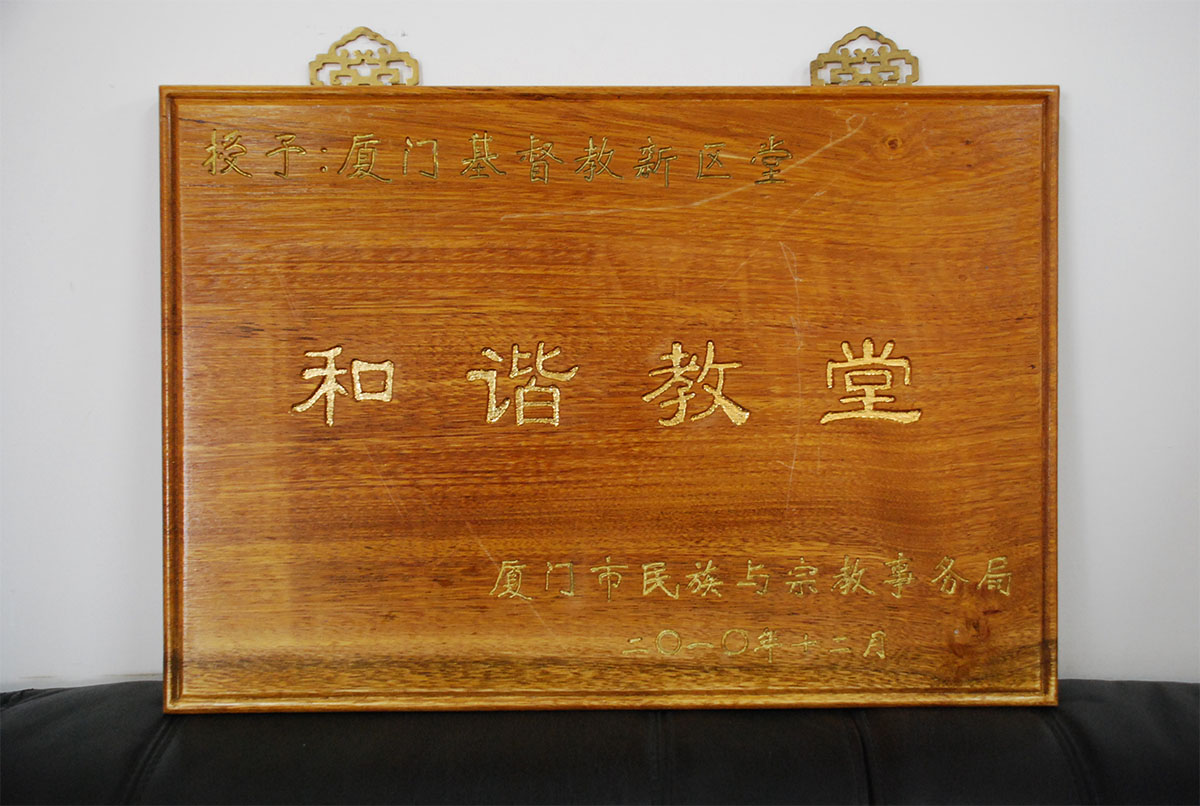 授予:厦门基督教新区堂
和谐教堂
厦门市民族与宗教事务局
二〇一〇年十二月